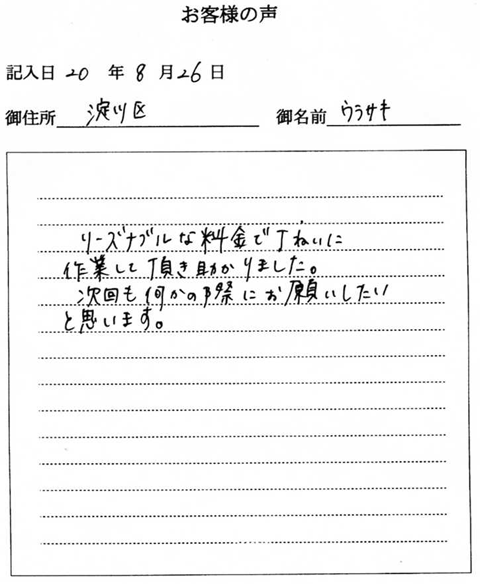 お客様の声
記入日 20 年 8 月 26 日
御住所 淀川区 御名前 ウラサキ
リーズナブルな料金で丁ねいに
作業して頂き助かりました。
次回も何かの際にお願いしたい
と思います。